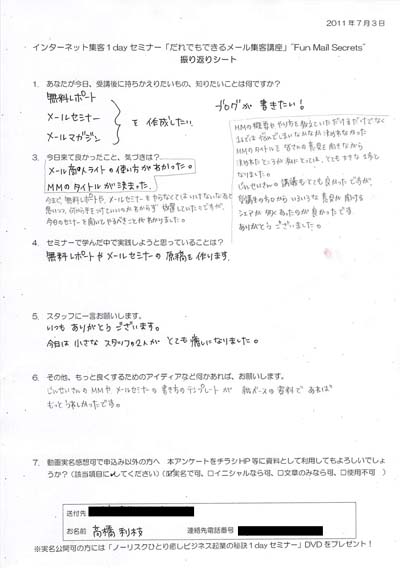 2011年7月3日
インターネット集客1dayセミナー「だれでもできるメール集客講座」"Fun Mail Secrets"
振り返りシート
1. あなたが今日、受講後に持ちかえりたいもの、知りたいことは何ですか?
無料レポート
メールセミナー
メールマガジン
を作成したい
ブログが書きたい!
MMの概要ややり方を教えていただけるだけでなく
MMのタイトルを皆さんの意見を聞きながら
決めれたところが私にとっては、とても大きな1歩と
なりました。
じぃせいさんの講義もとても良かったですが、
受講生の方からいろいろな意見が聞ける
シェアが多くあったのが良かったです
ありがとうございました。
3. 今日来て良かったこと、気づきは?
メール配りんライトの使い方がわかった。
MMのタイトルが決まった。
今まで、無料レポートや、メールセミナーをやらなくてはいけないなあと
思いつつ、何から手をつけていいのかわからず放置していたのですが、
今日のセミナーを聞いてやるべきことがわかりました。
4. セミナーで学んだ中で実践しようと思っていることは?
無料レポートやメールセミナーの原稿を作ります
5. スタッフに一言お願いします。
いつもありがとうございます。
今日は小さなスタッフの2人がとても癒しになりました。
6. その他、もっと良くするためのアイディアなど何かあれば、お願いします。
じぃせいさんのMMやメールセミナーの書き方のテンプレートが紙ベースの資料であれば
もっとうれしかったです。
7. 動画実名感想可で申込み以外の方へ 本アンケートをチラシHP等に資料として利用してもよろしいでしょ
うか?(該当項目に✓してください)(☑実名で可、□イニシャルなら可、□文章のみなら可、□使用不可 )
送付先
お名前 高橋利枝 連絡先電話番号
※実名公開可の方には「ノーリスクひとり癒しビジネス起業の秘訣1dayセミナー」DVDをプレゼント!